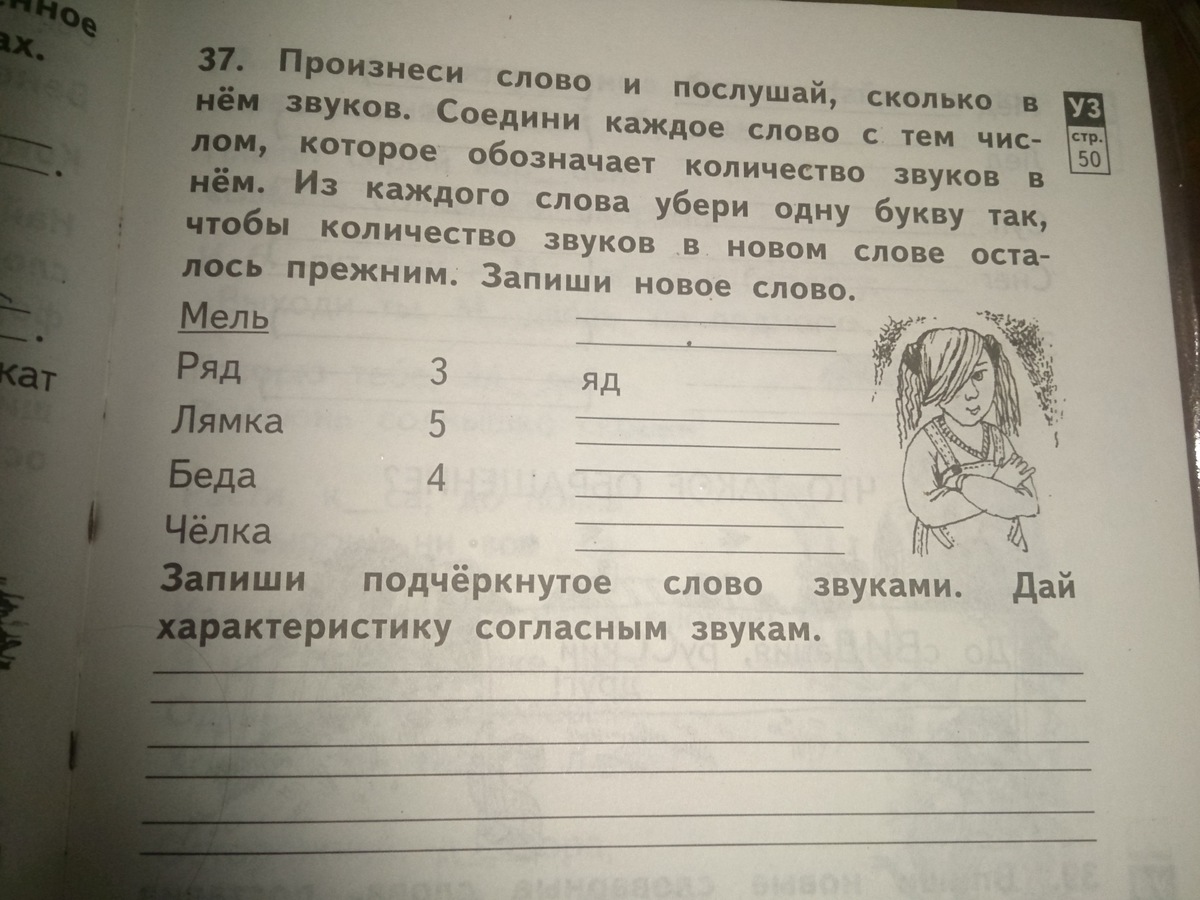 енное
ах.
кат
37. Произнеси слово и послушай, сколько в
нём звуков. Соедини каждое слово с тем чис-
лом, которое обозначает количество звуков в
нём. Из каждого слова убери одну букву так,
чтобы количество звуков в новом слове оста-
лось прежним. Запиши новое слово.
УЗ
стр.
50
Мель
Ряд 3 яд
Лямка 5
Беда 4
Чёлка
Запиши подчёркнутое слово звуками. Дай
характеристику согласным звукам.